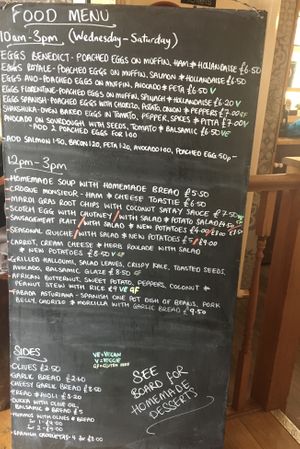 FOOD MENU
10am-3pm (Wednesday-Saturday)
EGGS BENEDICT-POACHED EGGS ON MUFFIN, HAM & HOLLANDAISE £6.50
EGGS ROYALE-POACHED EGGS ON MUFFIN, SALMON & HOLLANDAISE £6.50
EGGS AVO-POACHED EGGS ON MUFFIN, AVOCADO & FETA £6.50 V
EGGS FLORENTINE-POACHED EGGS ON MUFFIN, SPINACH & HOLLANDAISE £6.20 V
EGGS SPANISH-POACHED EGGS WITH CHORIZO, POTATO, ONION & PEPPERS £7.00 GF
SHAKSHUKA-OVEN BAKED EGGS IN TOMATO, PEPPER, SPICES & PITTA £7.00 V
AVOCADO ON SOURDOUGH WITH SEEDS, TOMATO & BALSAMIC £6.50 VE
-ADD 2 POACHED EGGS FOR 1.00
ADD SALMON 1.50, BACON 1.20, FETA 1.20, AVOCADO 1.00, POACHED EGG 50p-
12pm-3pm
HOMEMADE SOUP WITH HOMEMADE BREAD £5.50
CROQUE MONSIEUR-HAM & CHEESE TOASTIE £6.50
MARDI GRAS ROOT CHIPS WITH COCONUT SATAY SAUCE £7.50
SCOTCH EGG WITH CHUTNEY/WITH SALAD & POTATO SALAD
SAUSAGEMEAT PLAIT/WITH SALAD & NEW POTATOES £4.00
SEASONAL QUICHE/WITH SALAD & NEW POTATOES £5/£9.00
CARROT, CREAM CHEESE & HERB ROULADE WITH SALAD
& NEW POTATOES £8.50 V GF
GRILLED HALLOUMI, SALAD LEAVES, CRISPY KALE, TOASTED SEEDS,
AVOCADO, BALSAMIC GLAZE £8.50
AFRICAN BUTTERNUT, SWEET POTATO, PEPPERS, COCONUT &
PEANUT STEW WITH RICE £9 VE GF
FABADA ASTURIANA-SPANISH ONE POT DISH OF BEANS, PORK
BELLY, CHORIZO & MORCILLA WITH GARLIC BREAD £9.50
SIDES
VE=VEGAN
V=VEGGIE
GF=GLUTEN FREE
OLIVES £2.50
GARLIC BREAD £2.60
CHEESY GARLIC BREAD £3.50
BREAD & AIOLI £3.20
DUKKA WITH OLIVE OIL,
BALSAMIC & BREAD £5
HUMMUS WITH OLIVES & BREAD
for 1-£4.00
for 2-£7.00
SPANISH CROQUETAS-4 for £5.00
SEE
BOARD FOR
HOMEMADE
DESSERTS